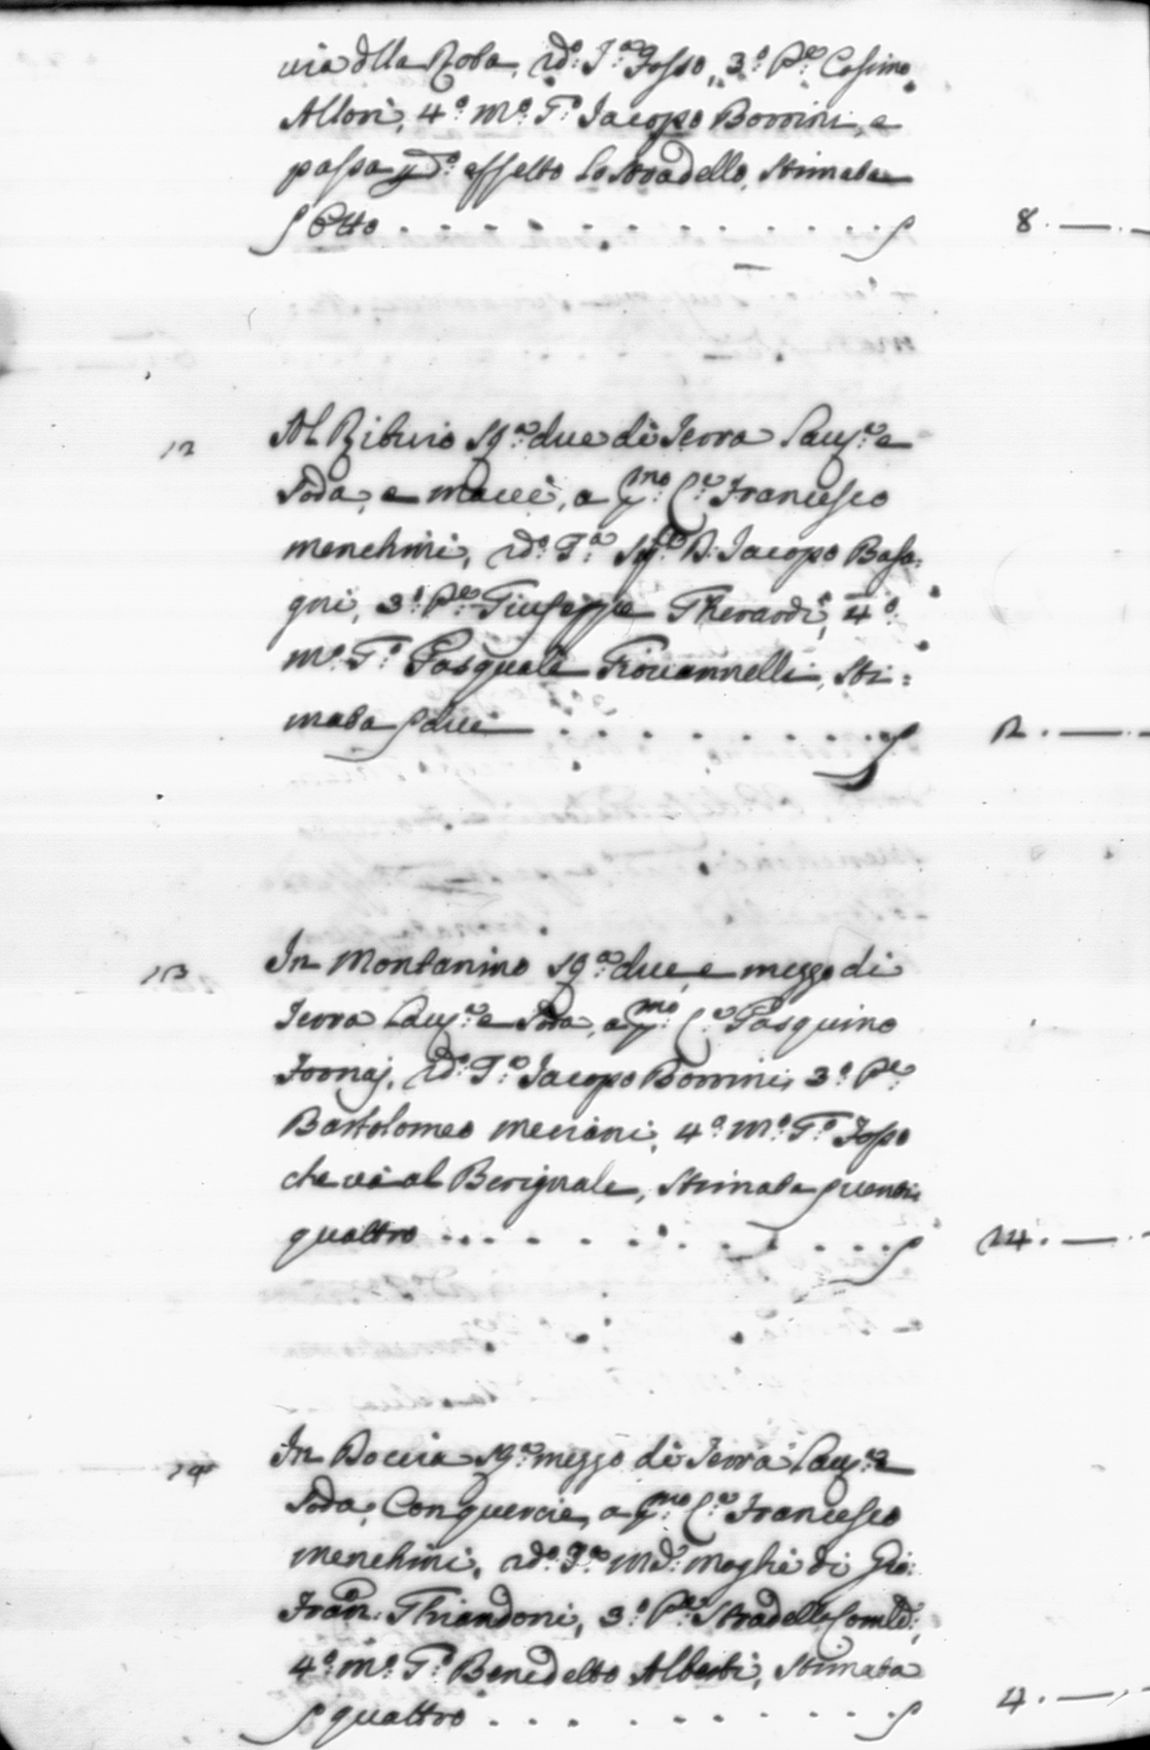 via dlla Roba, 2do: Ta: Fosso, 3o: Pe: Cosimo
Allori, 4o: Mo: To: Jacopo Borrini, e
passa pdo: effetto lo Stradello, Stimata
∫ Otto . . . . . . . . . . . ∫ 8. — .
12 Al Riburio Sqa: due di Terra Laua: e
Soda, e macci, a pmo: Ce: Francesco
menchini, 2do: Ta: Sige: D: Jacopo Basa:
gni, 3o: Pe: Giuseppe Gherardi, 4o:
Mo: To: Pasquale Giouannelli, Sti:
mata ∫ dieci . . . . . . . . ∫ — . — .
13 In Montanino Sqa: due, e mezzo di
Terra Laua: e Soda, a pmo: Ce: Pasquino
Fornaj, 2do: Ta: Jacopo Borrini, 3o: Pe:
Bartolomeo Meciani, 4o: Mo: To: Fosso
che và al Berignale, Stimata ∫ uenti
quattro . . . . . . . . . . ∫ 24. — .
14 In Doccia Sqa: mezzo di Terra Laua: e
Soda, Con quercie, a pmo: Ce: Francesco
Menchini, 2do: Ta: Md: Moglie di Gio:
Fran: Ghiandoni, 3o: Pe: Stradello Comle:,
4o: Mo: To: Benedetto Alberti, Stimata
∫ quattro . . . . . . . . . ∫ 4. — .